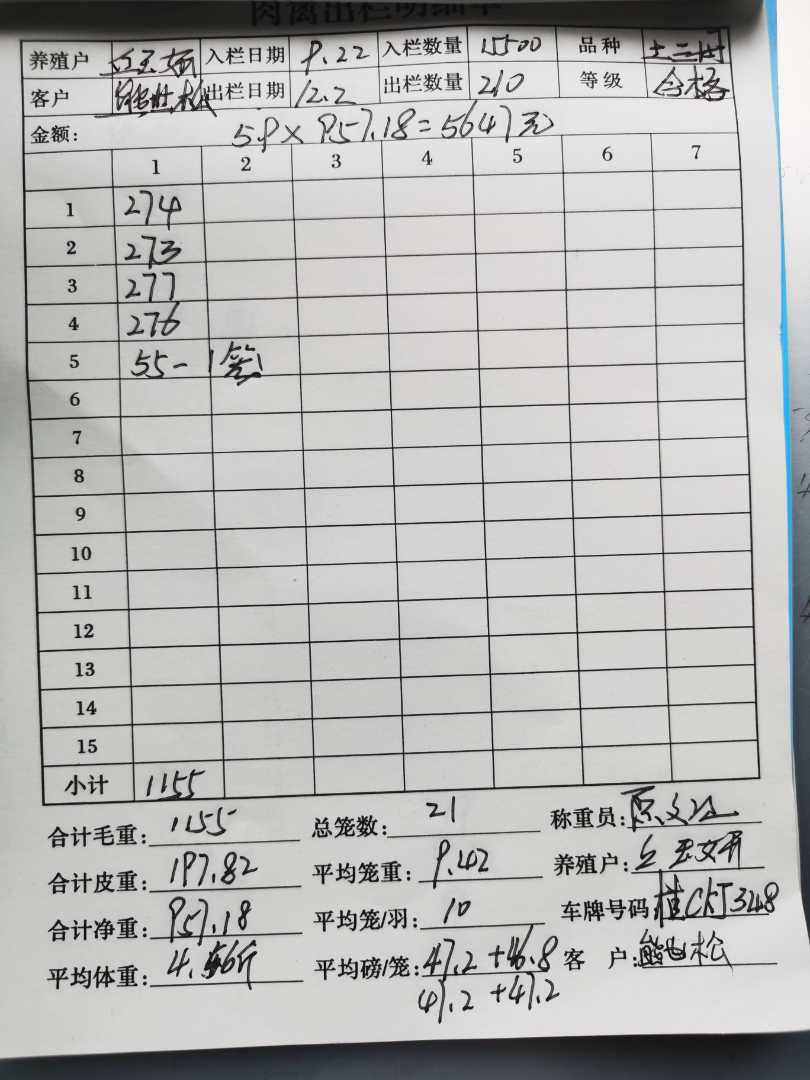 肉禽出栏明细单
养殖户 丘玉妍 入栏日期 9.22 入栏数量 15500 品种 土二
客户 松 出栏日期 12.2 出栏数量 210 等级 合格
金额: 5.9×957.18=5647元
1 2 3 4 5 6 7
1 274
2 273
3 277
4 276
5 55-1笼
6
7
8
9
10
11
12
13
14
15
小计 1155
合计毛重: 1155 总笼数: 21 称重员:
合计皮重: 197.82 平均笼重: 9.42 养殖户: 丘玉妍
合计净重: 957.18 平均笼/羽: 10 车牌号码: 桂CKJ348
平均体重: 4.56斤 平均磅/笼: 47.2+46.8 客 户: 松
47.2+47.2